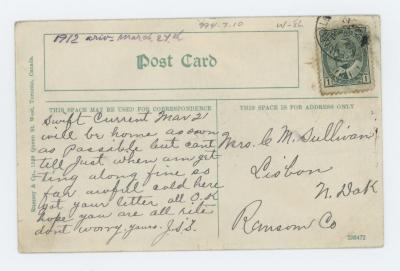 1912 ariv- March 24th
994.7.10
W-86
Post Card
THIS SPACE MAY BE USED FOR CORRESPONDENCE
THIS SPACE IS FOR ADDRESS ONLY
Rumsey & Co., 1138 Queen St. West, Toronto, Canada.
Swift Current Mar 21
will be home as soon
as possible but cant
till Just when am get
ting along fine so
far awfull cold here
got your letter all O.K
hope you are all rite
dont worry. yours. J.S.
Mrs. C M. Sullivan
Lisbon
N. Dak
Ransom Co
1
1